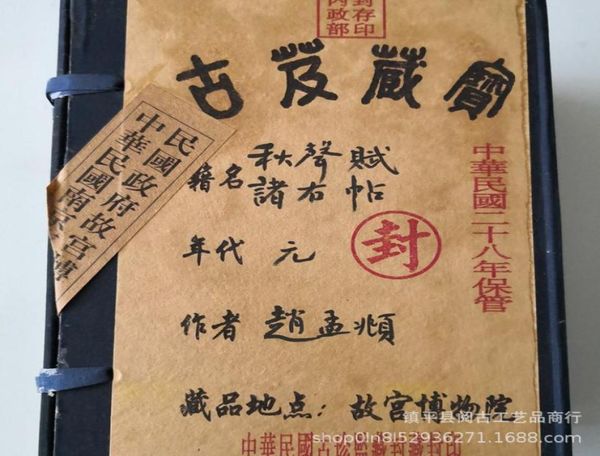 封存印
内政部
古芨蔵寶
籍名 秋聲賦
諸右帖
年代 元
封
作者 趙孟頫
藏品地点：故宫博物院
中華民國二十八年保管
民國政府故宫博
中華民國南京
镇平县阅古工艺品商行
shop0ln8l52936271.1688.com